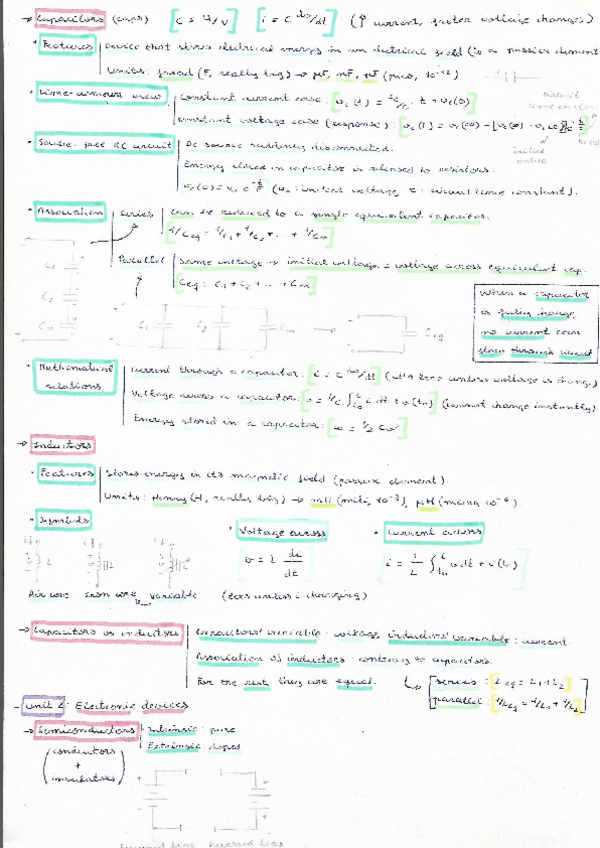 → Capacitors (caps) [C = q/v] [i = C dv/dt] (↑ current, faster voltage changes)
· Features | Device that stores electrical energy in an electrical field (is a passive element
Units: farad (F, really big) → μF, nF, pF (pico, 10⁻¹²)
· Time-domain view | Constant current case: [v_c(t) = · t + v_c(0)]
circuit time constant
Constant voltage case (response): [v_c(t) =
initial value
· Source-free RC circuit | DC source suddenly disconnected.
Energy stored in capacitor is released to resistors.
(v₀: initial voltage, τ: circuit time constant).
· Association | Series | Can be reduced to a single equivalent capacitor.
[1/Ceq = 1/C1 + 1/C2 + ... + 1/Cm]
Parallel | Same voltage → initial voltage = voltage across equivalent cap.
[Ceq = C1 + C2 + ... + Cm]
C2
Cm
C1 C2 Cm → Ceq
When a capacitor
is fully charge,
no current can
flow through circuit
· Mathematical relations | Current through a capacitor: [i = C dv/dt] (it's zero unless voltage is change)
Voltage across a capacitor: [v = 1/C ∫ i dt + v(t₀)] (cannot change instantly)
Energy stored in a capacitor: [w = 1/2 Cv²]
→ Inductors
· Features | Stores energy in its magnetic field (passive element).
Units: Henry (H, really big) → mH (mili, 10⁻³), μH (micro, 10⁻⁶).
· Symbols · Voltage across · Current across
v = L di/dt i = 1/L ∫ v dt + i(t₀)
Air core Iron core variable (Zero unless i changing)
→ Capacitors vs inductors | Capacitors' variable: voltage, inductors' variable: current.
Association of inductors: contrary to capacitors.
For the rest, they are equal. ↳ [series: [Leq = L1 + L2]
parallel: [1/Leq = 1/L1 + 1/L2]
- Unit 2: Electronic devices
→ Semiconductors | Intrinsic: pure
Extrinsic: dopes
(conductors
+
insulators)
Forward bias Reversed bias